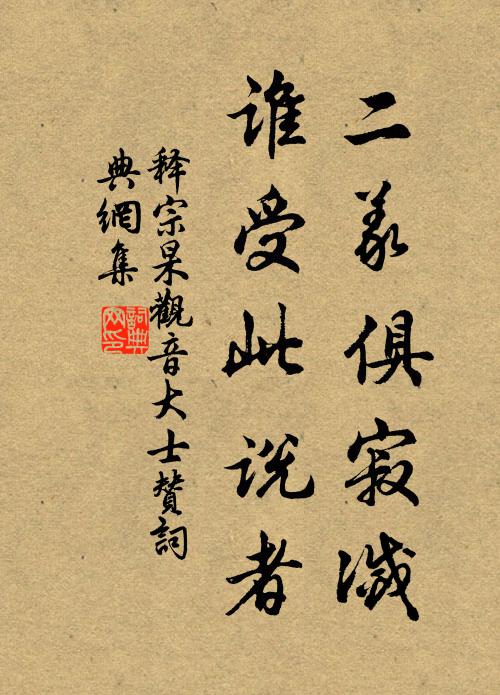 二義俱寂滅
誰受此説者
释宗杲觀音大士贊詞
典網集
詞典網印